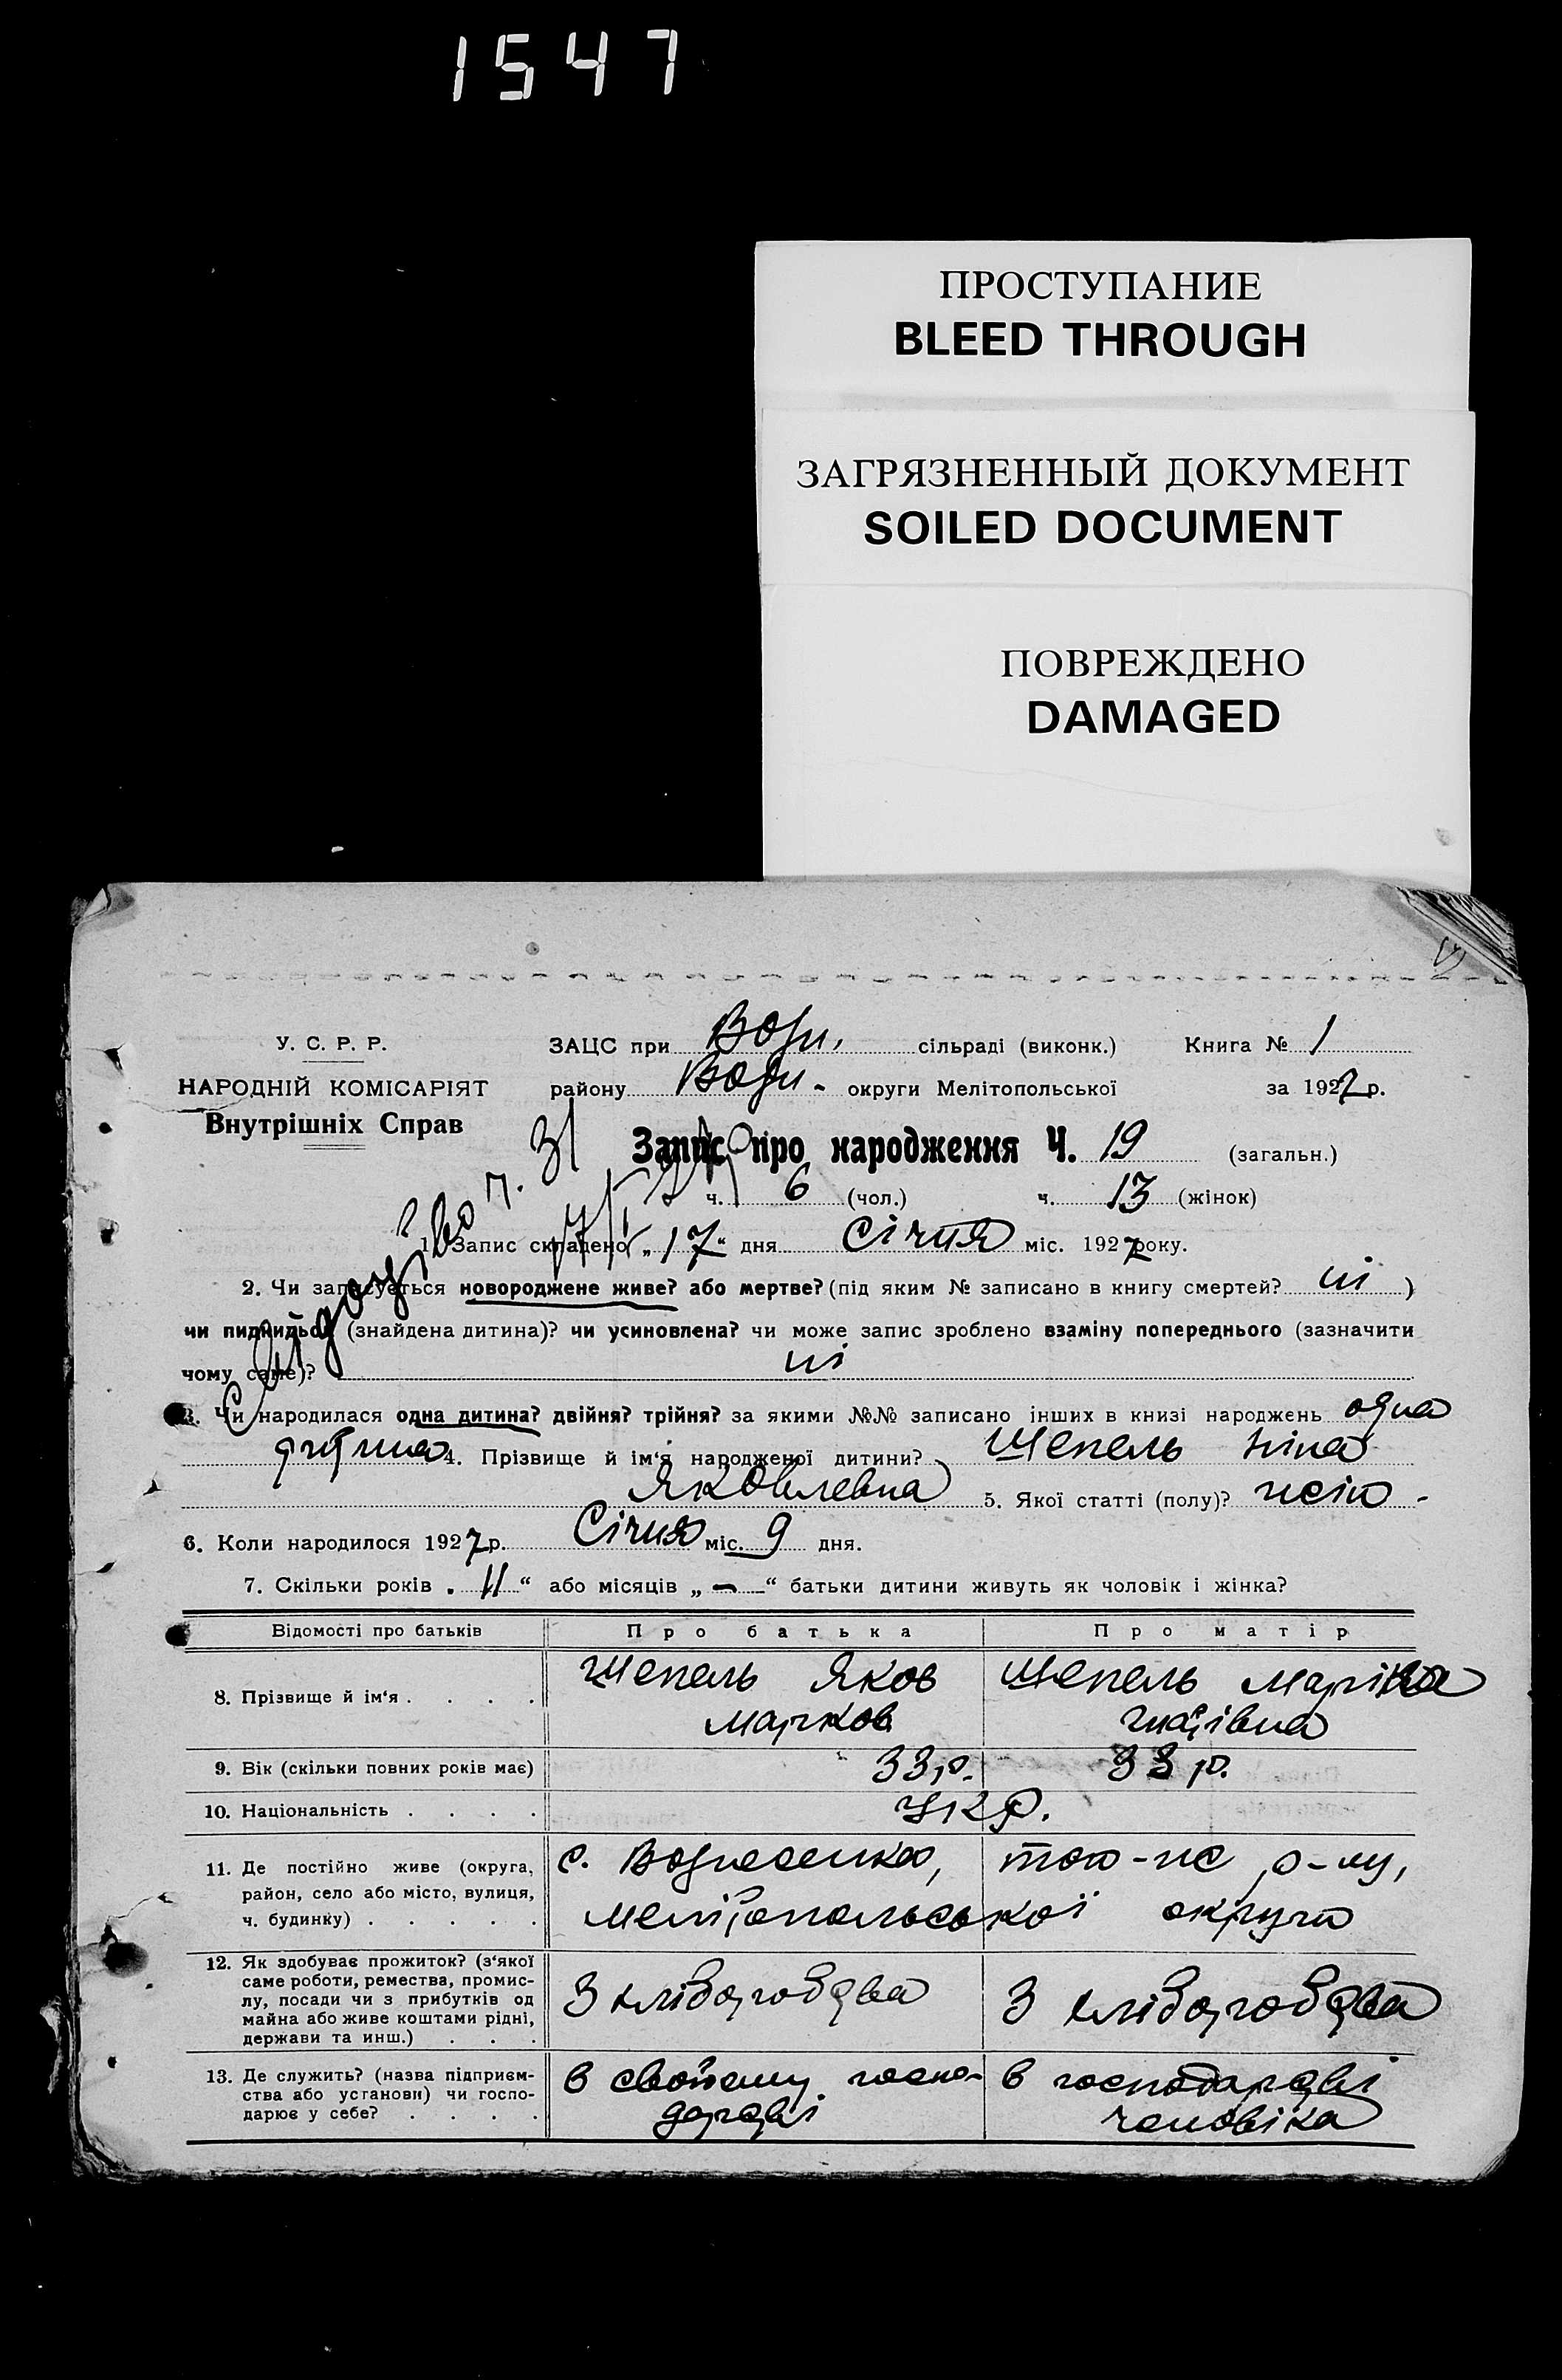 1547
ПРОСТУПАНИЕ
BLEED THROUGH
ЗАГРЯЗНЕННЫЙ ДОКУМЕНТ
SOILED DOCUMENT
ПОВРЕЖДЕНО
DAMAGED
У. С. Р. Р.
НАРОДНІЙ КОМІСАРІЯТ
Внутрішніх Справ
ЗАЦС при Возн. сільраді (виконк.) Книга № 1
району Возн- округи Мелітопольської за 1927 р.
Запис про народження Ч. 19 (загальн.)
ч. 6 (чол.) ч. 13 (жінок)
1. Запис складено „17“ дня Січня міс. 1927 року.
2. Чи записується новороджене живе? або мертве? (під яким № записано в книгу смертей? ні )
чи пидкидьок (знайдена дитина)? чи усиновлена? чи може запис зроблено взаміну попереднього (зазначити
чому саме)? ні
3. Чи народилася одна дитина? двійня? трійня? за якими №№ записано інших в книзі народжень одна
дитина 4. Прізвище й ім'я народженої дитини? Шепель Ніна
Яковлевна 5. Якої статті (полу)? жіно-
6. Коли народилося 1927 р. Січня міс. 9 дня.
7. Скільки років „11“ або місяців „-“ батьки дитини живуть як чоловік і жінка?
Відомості про батьків Про батька Про матір
8. Прізвище й ім'я . . . . Шепель Яков Шепель
Марков
9. Вік (скільки повних років має) 33 р. 33 р.
10. Національність . . . . Укр.
11. Де постійно живе (округа, с. Вознесенка, того-же р-ну,
район, село або місто, вулиця,
ч. будинку) . . . . . Мелітопольської округи
12. Як здобуває прожиток? (з'якої
саме роботи, ремества, промис-
лу, посади чи з прибутків од
майна або живе коштами рідні,
держави та инш.) . . .
З хліборобства З хліборобства
13. Де служить? (назва підприєм-
ства або установи) чи госпо-
дарює у себе? . . . .
в своїому госпо- в господарстві
дарстві чоловіка